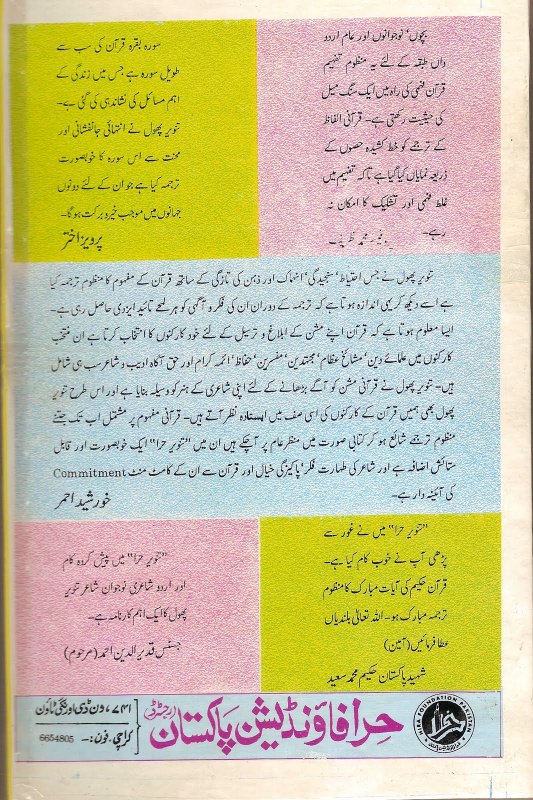 بچوں، نوجوانوں اور عام اردو
داں طبقہ کے لئے یہ منظوم تفہیم
قرآن فہمی کی راہ میں ایک سنگ میل
کی حیثیت رکھتی ہے۔ قرآنی الفاظ
کے ترجمے کو خط کشیدہ حصوں کے
ذریعہ نمایاں کیا گیا ہے تاکہ تفہیم میں
غلط فہمی اور تشکیک کا امکان نہ
رہے۔
محمد ظریف
سورہ بقرہ قرآن کی سب سے
طویل سورہ ہے جس میں زندگی کے
اہم مسائل کی نشاندہی کی گئی ہے۔
تنویر پھول نے انتہائی جانفشانی اور
محنت سے اس سورہ کا خوبصورت
ترجمہ کیا ہے جو ان کے لئے دونوں
جہانوں میں موجب خیر و برکت ہوگا۔
پرویز اختر
تنویر پھول نے جس احتیاط، سنجیدگی، انہماک اور ذہن کی تازگی کے ساتھ قرآن کے مفہوم کا منظوم ترجمہ کیا
ہے اسے دیکھ کر یہی اندازہ ہوتا ہے کہ ترجمہ کے دوران ان کی فکر و آگہی کو ہر لمحے تائید ایزدی حاصل رہی ہے۔
ایسا معلوم ہوتا ہے کہ قرآن اپنے مشن کے ابلاغ و ترسیل کے لئے خود کارکنوں کا انتخاب کرتا ہے ان منتخب
کارکنوں میں علمائے دین، مشائخ عظام، مجتہدین، مفسرین، حفاظ، ائمہ کرام اور حق آگاہ ادیب و شاعر سب ہی شامل
ہیں۔ تنویر پھول نے قرآنی مشن کو آگے بڑھانے کے لئے اپنی شاعری کے ہنر کو وسیلہ بنایا ہے اور اس طرح تنویر
پھول بھی ہمیں قرآن کے کارکنوں کی اسی صف میں ایستادہ نظر آتے ہیں۔ قرآنی مفہوم پر مشتمل اب تک جتنے
منظوم ترجمے شائع ہو کر کتابی صورت میں منظر عام پر آچکے ہیں ان میں "تنویر حرا" ایک خوبصورت اور قابل
ستائش اضافہ ہے اور شاعر کی طہارت فکر، پاکیزگی خیال اور قرآن سے ان کے کامٹ منٹ Commitment
کی آئینہ دار ہے۔
خورشید احمر
"تنویر حرا" میں نے غور سے
پڑھی آپ نے خوب کام کیا ہے۔
قرآن حکیم کی آیات مبارک کا منظوم
ترجمہ مبارک ہو۔ اللہ تعالیٰ بلندیاں
عطا فرمائیں (آمین)
شہید پاکستان حکیم محمد سعید
"تنویر حرا" میں پیش کردہ کام
اور اردو شاعری نوجوان شاعر تنویر
پھول کا ایک اہم کارنامہ ہے۔
جسٹس قدیر الدین احمد (مرحوم)
HIRA FOUNDATION PAKISTAN
حرا
حرا فاؤنڈیشن پاکستان رجسٹرڈ
۷۴۱، ون ڈی اورنگی ٹاؤن
کراچی۔ فون:- 6654805